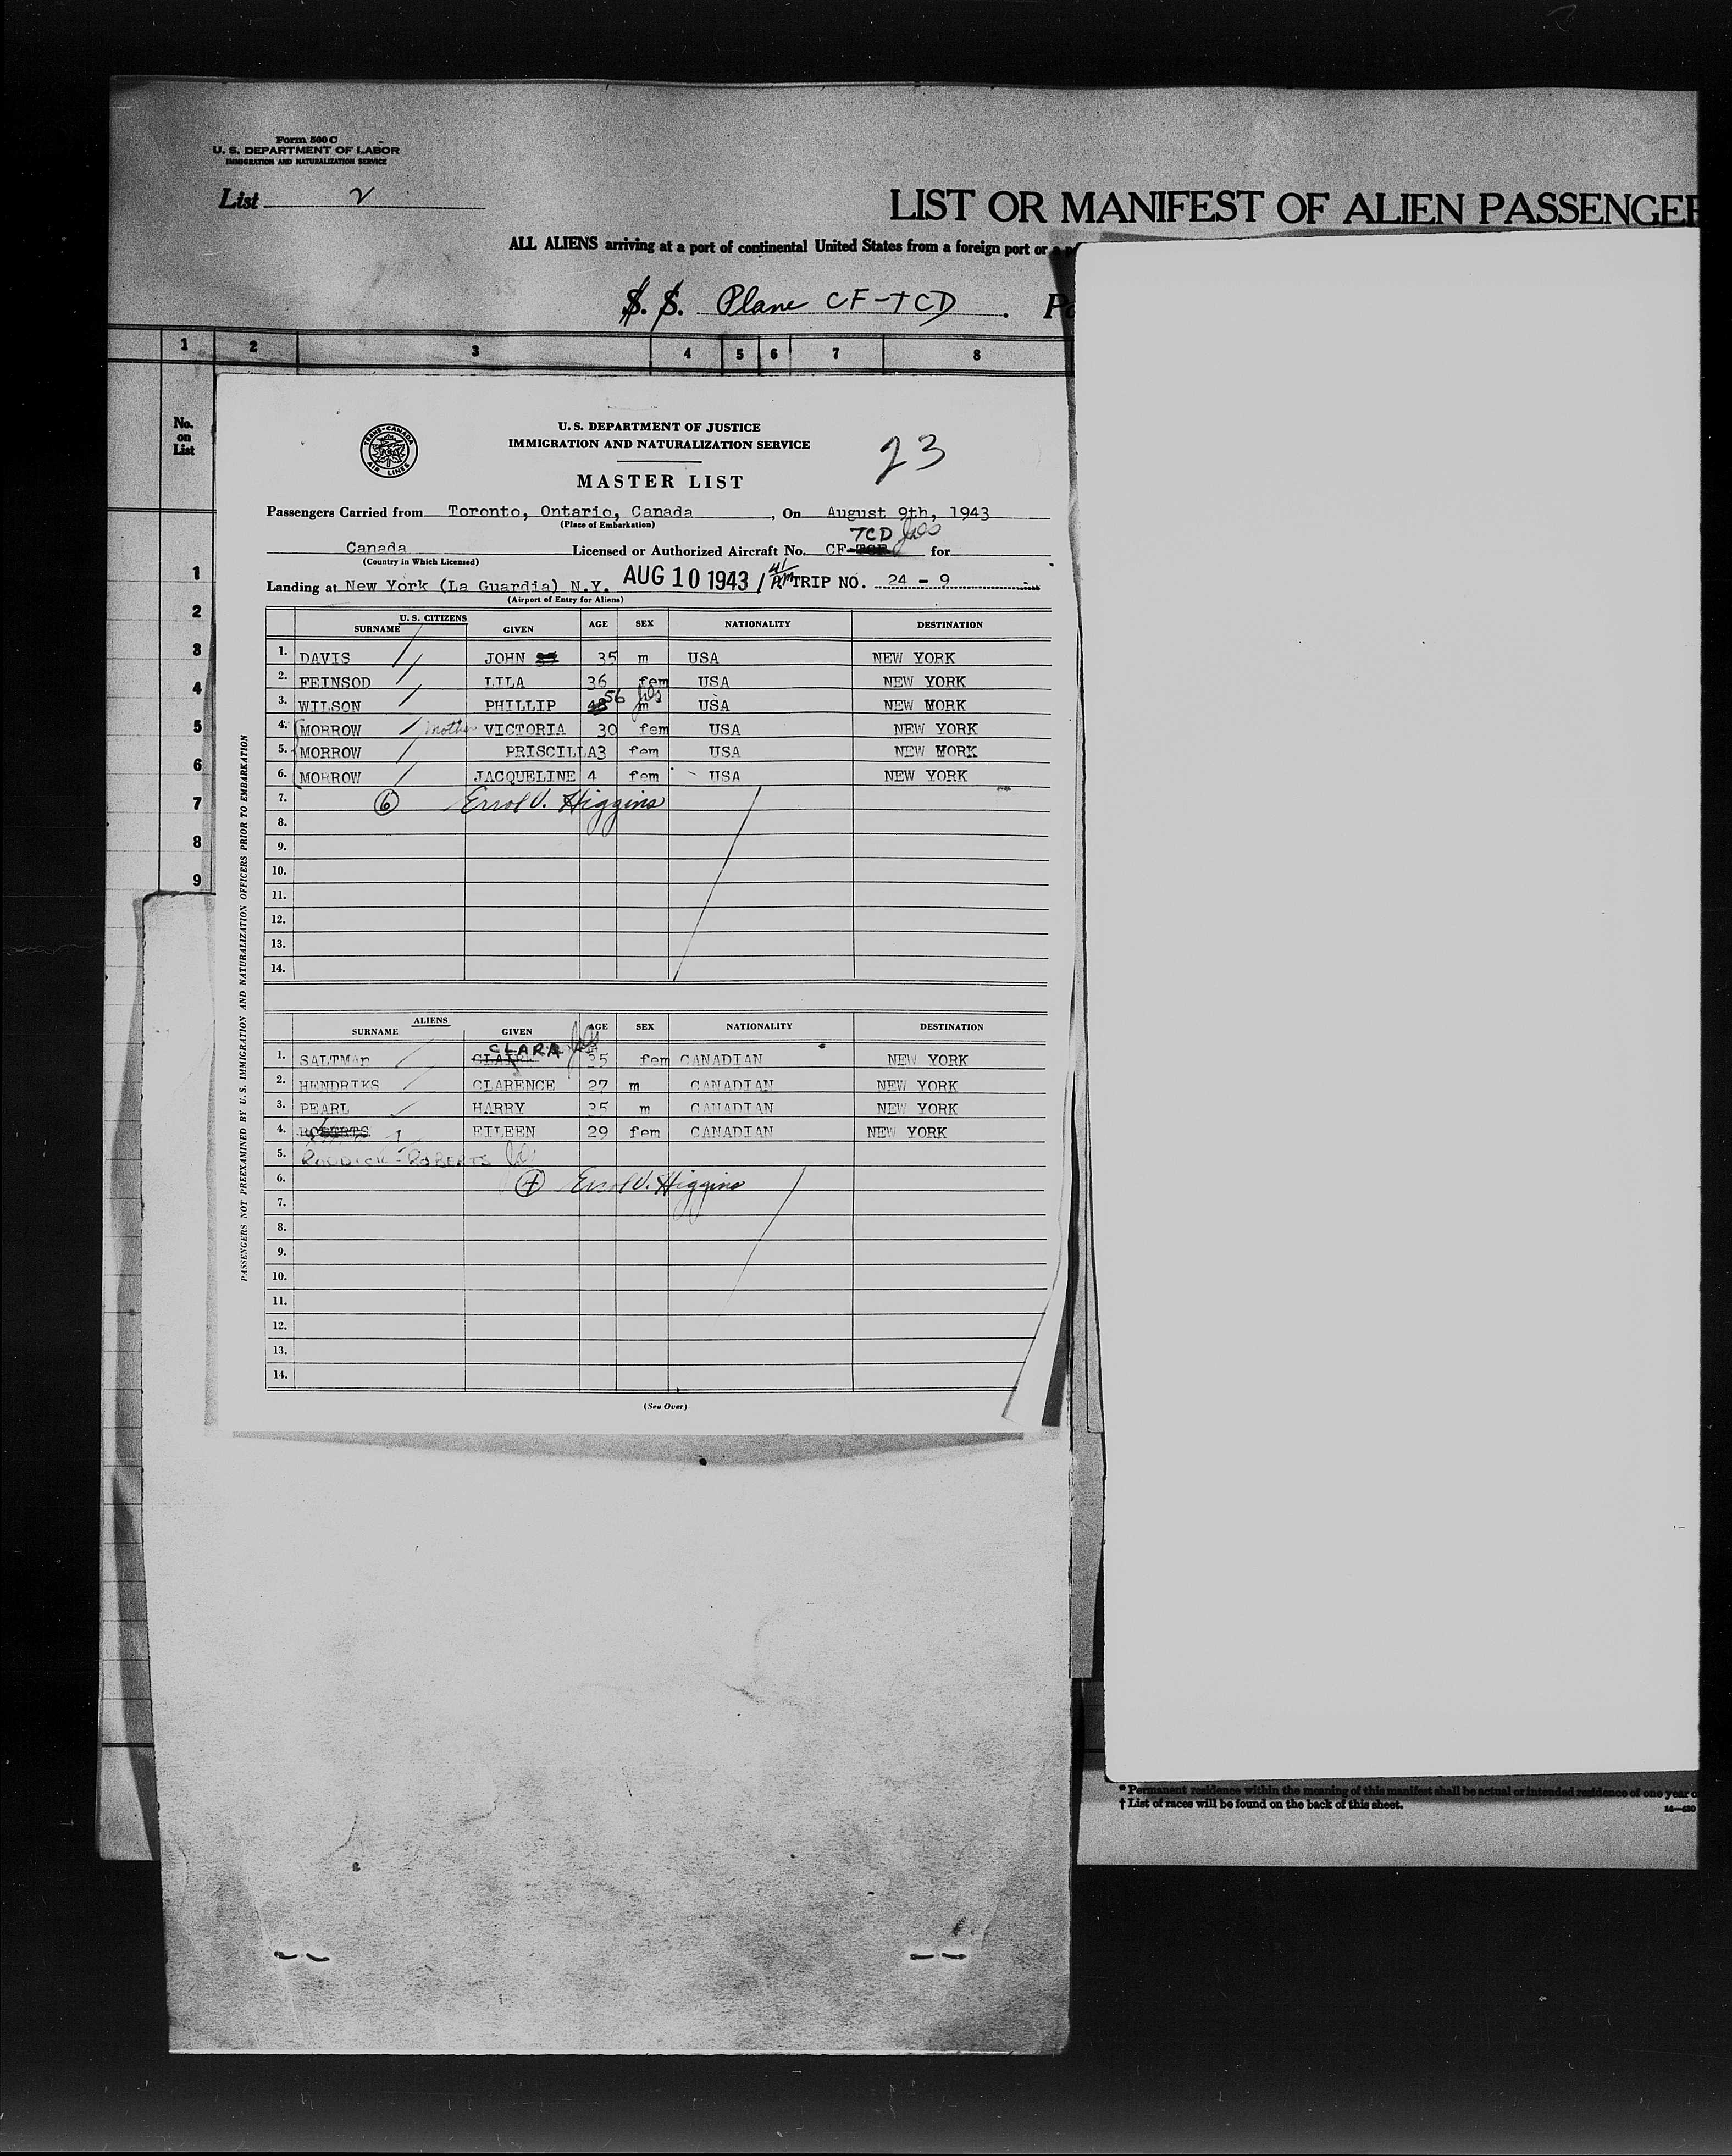 Form 500 C
U. S. DEPARTMENT OF LABOR
IMMIGRATION AND NATURALIZATION SERVICE
List 2
LIST OR MANIFEST OF ALIEN PASSENGER
ALL ALIENS arriving at a port of continental United States from a foreign port or a p
S. S. Plane CF-TCD . Po
1 2 3 4 5 6 7 8
No.
on
List
1
2
3
4
5
6
7
8
9
TRANS-CANADA AIR LINES
U. S. DEPARTMENT OF JUSTICE
IMMIGRATION AND NATURALIZATION SERVICE
23
MASTER LIST
Passengers Carried from Toronto, Ontario, Canada , On August 9th, 1943
(Place of Embarkation)
TCD
Canada Licensed or Authorized Aircraft No. CF- for
(Country in Which Licensed)
Landing at New York (La Guardia) N.Y. AUG 10 1943 TRIP NO. 24 - 9
(Airport of Entry for Aliens)
U. S. CITIZENS
SURNAME GIVEN AGE SEX NATIONALITY DESTINATION
1. DAVIS JOHN 35 m USA NEW YORK
2. FEINSOD LILA 36 fem USA NEW YORK
3. WILSON PHILLIP 56 m USA NEW YORK
4. MORROW Mother VICTORIA 30 fem USA NEW YORK
5. MORROW PRISCILLA 3 fem USA NEW YORK
6. MORROW JACQUELINE 4 fem USA NEW YORK
7. 6 Errol V. Higgins
8.
9.
10.
11.
12.
13.
14.
ALIENS
SURNAME GIVEN AGE SEX NATIONALITY DESTINATION
CLARA
1. SALTMAn 35 fem CANADIAN NEW YORK
2. HENDRIKS CLARENCE 27 m CANADIAN NEW YORK
3. PEARL HARRY 35 m CANADIAN NEW YORK
4. ROBERTS EILEEN 29 fem CANADIAN NEW YORK
5. RODDICK-ROBERTS
6. 4 Errol V. Higgins
7.
8.
9.
10.
11.
12.
13.
14.
(See Over)
PASSENGERS NOT PREEXAMINED BY U.S. IMMIGRATION AND NATURALIZATION OFFICERS PRIOR TO EMBARKATION
* Permanent residence within the meaning of this manifest shall be actual or intended residence of one year o
† List of races will be found on the back of this sheet.